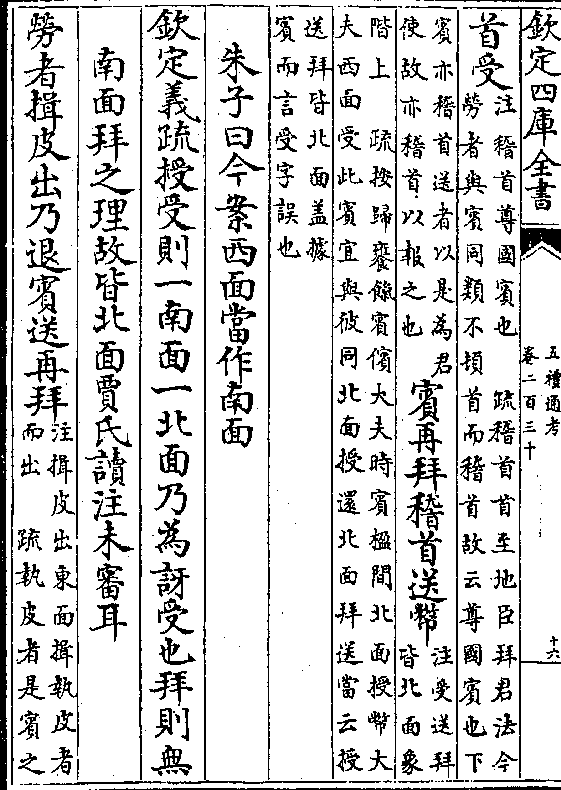 欽定四庫全書
五禮通考
卷二百三十
十六
首受
注稽首尊國賓也 疏稽首首至地臣拜君法今
勞者與賓同類不頓首而稽首故云尊國賓也下
賓亦稽首送者以是為君
使故亦稽首以報之也
賓再拜稽首送幣
注受送拜
皆北面象
階上 疏按歸饔餼賓儐大夫時賓楹間北面授幣大
夫西面受此賓宜與彼同北面授還北面拜送當云授
送拜皆北面蓋據
賓而言受字誤也
朱子曰今案西面當作南面
欽定義疏授受則一南面一北面乃為訝受也拜則無
南面拜之理故皆北面賈氏讀注未審耳
勞者揖皮出乃退賓送再拜
注揖皮出東面揖執皮者
而出 疏執皮者是賓之